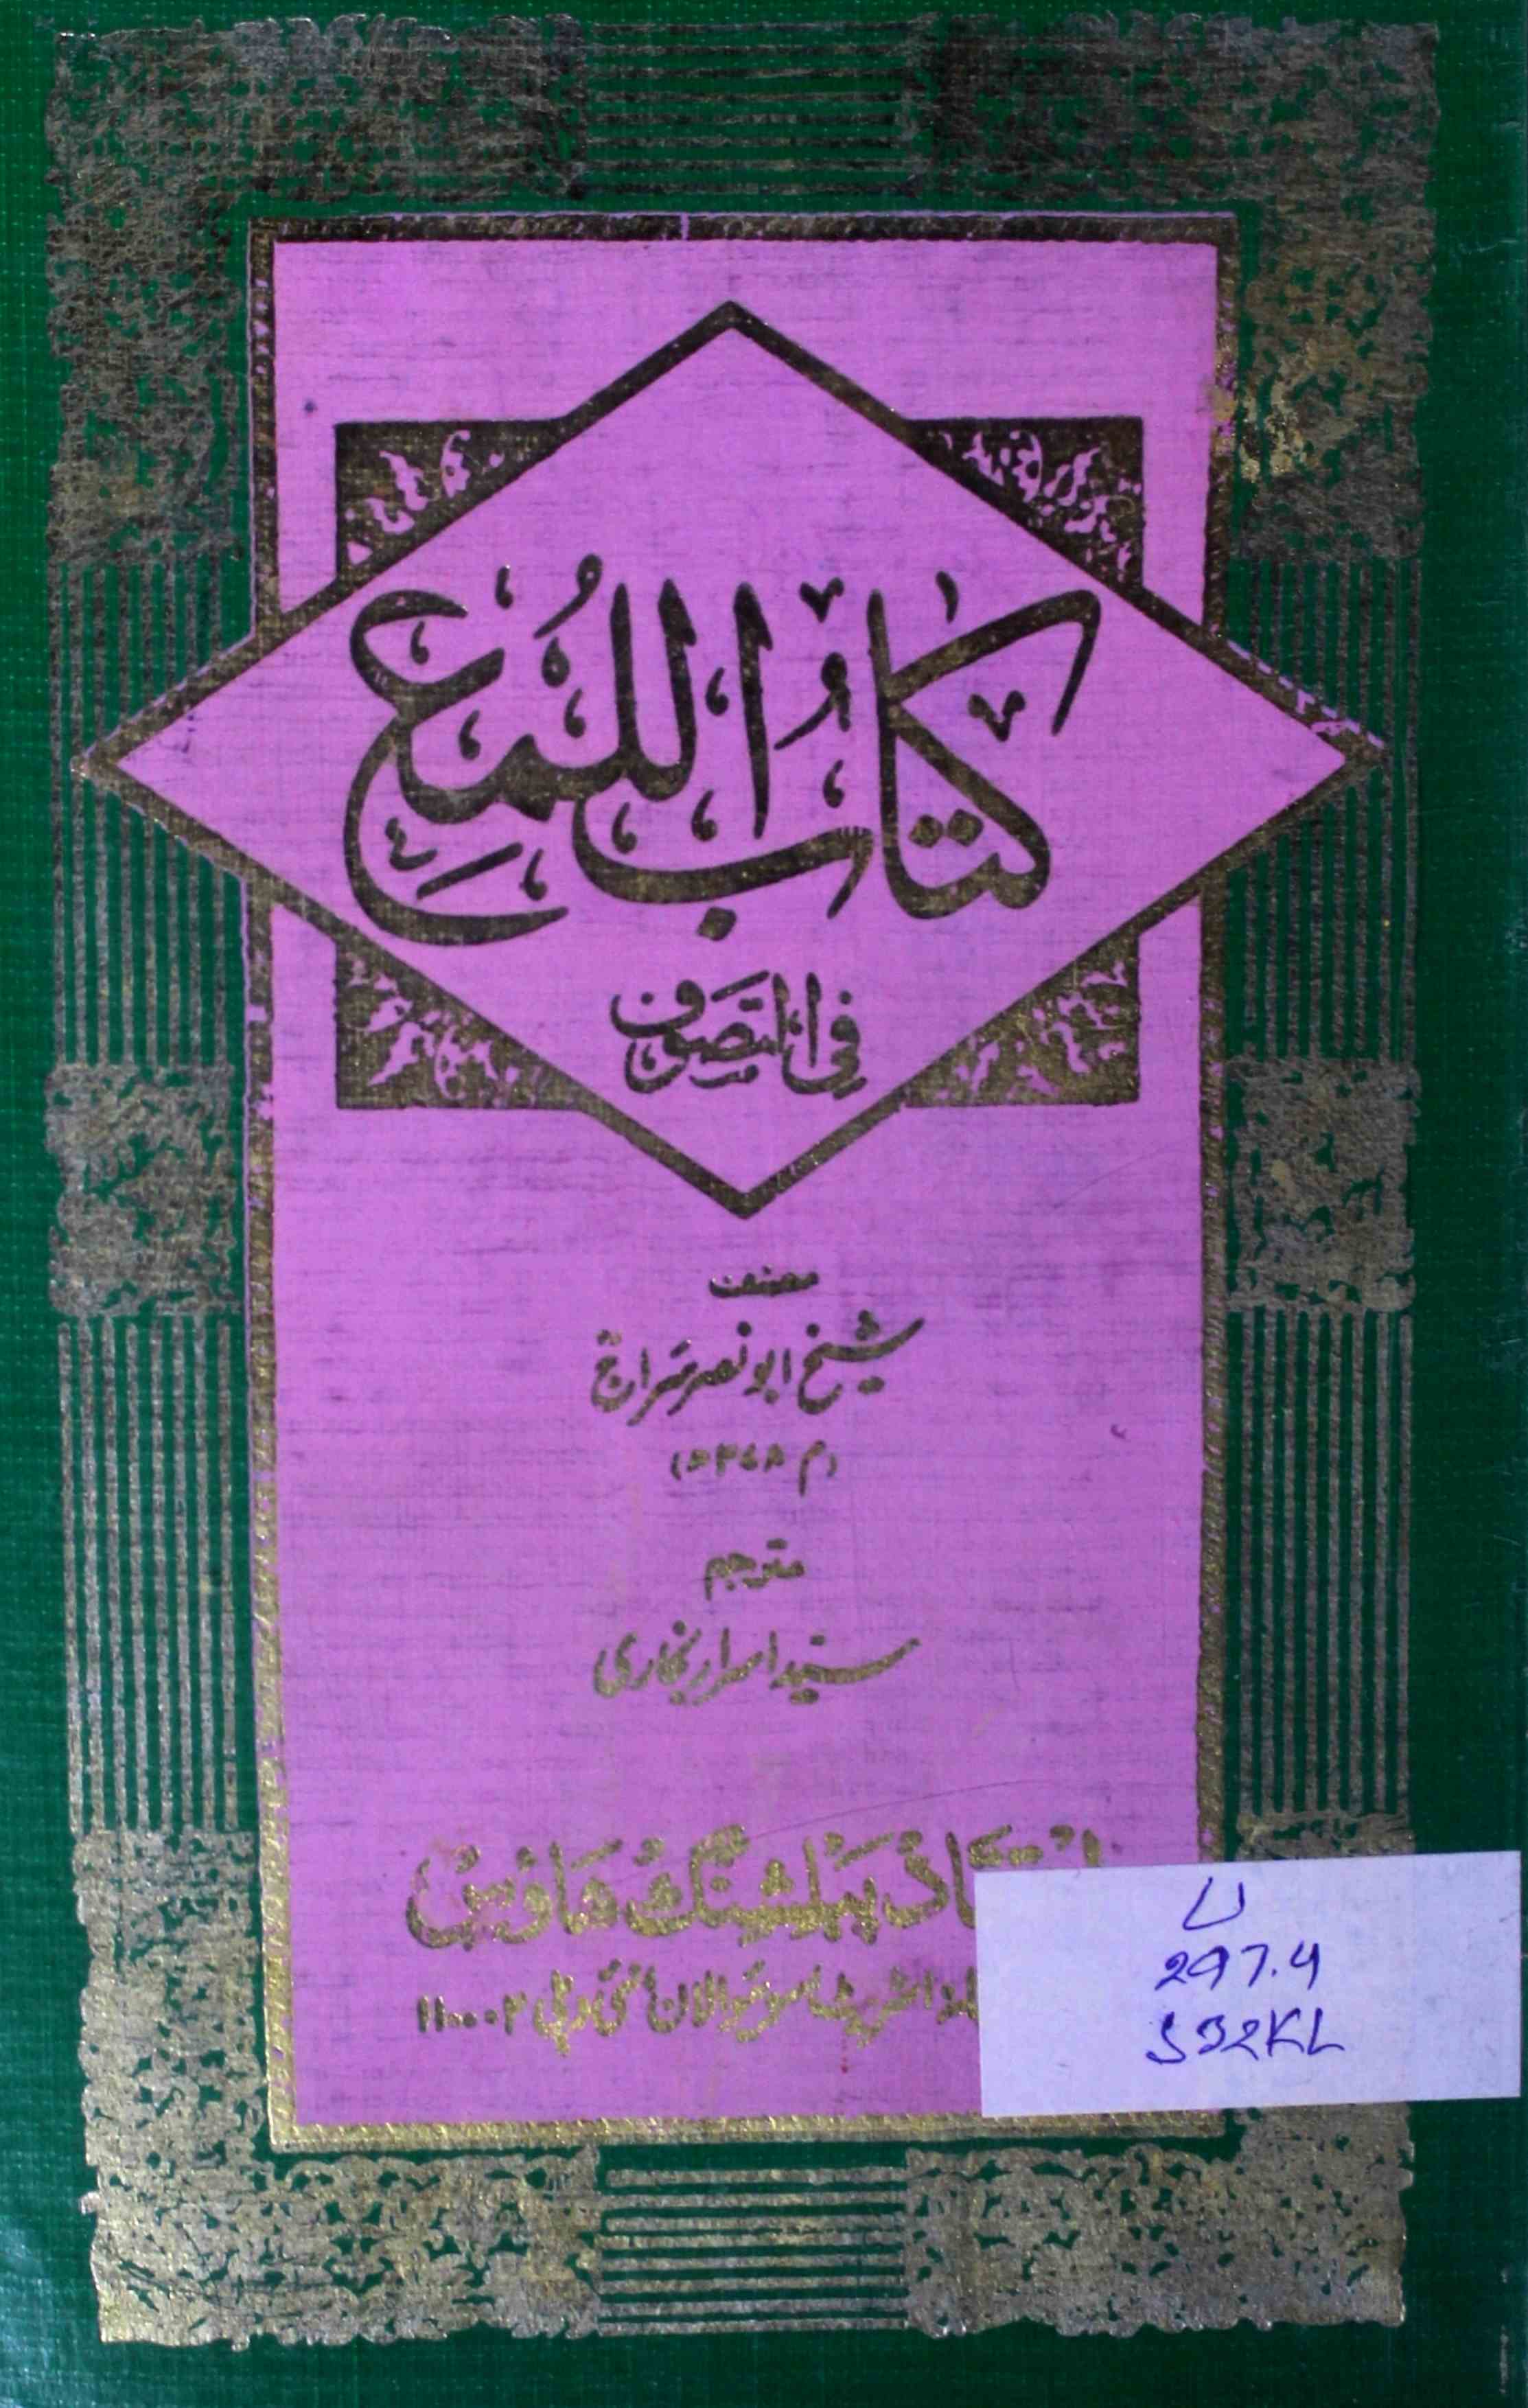 كِتَابُ اللُّمَع
فِي التَّصَوُّف
مصنف
شیخ ابو نصر سراج
(م ۳۷۸ھ)
مترجم
سید اسرار بخاری
پبلشنگ ھاؤس
سوئیوالان نئی دہلی ۱۱۰۰۰۲
U
297.4
S32KL